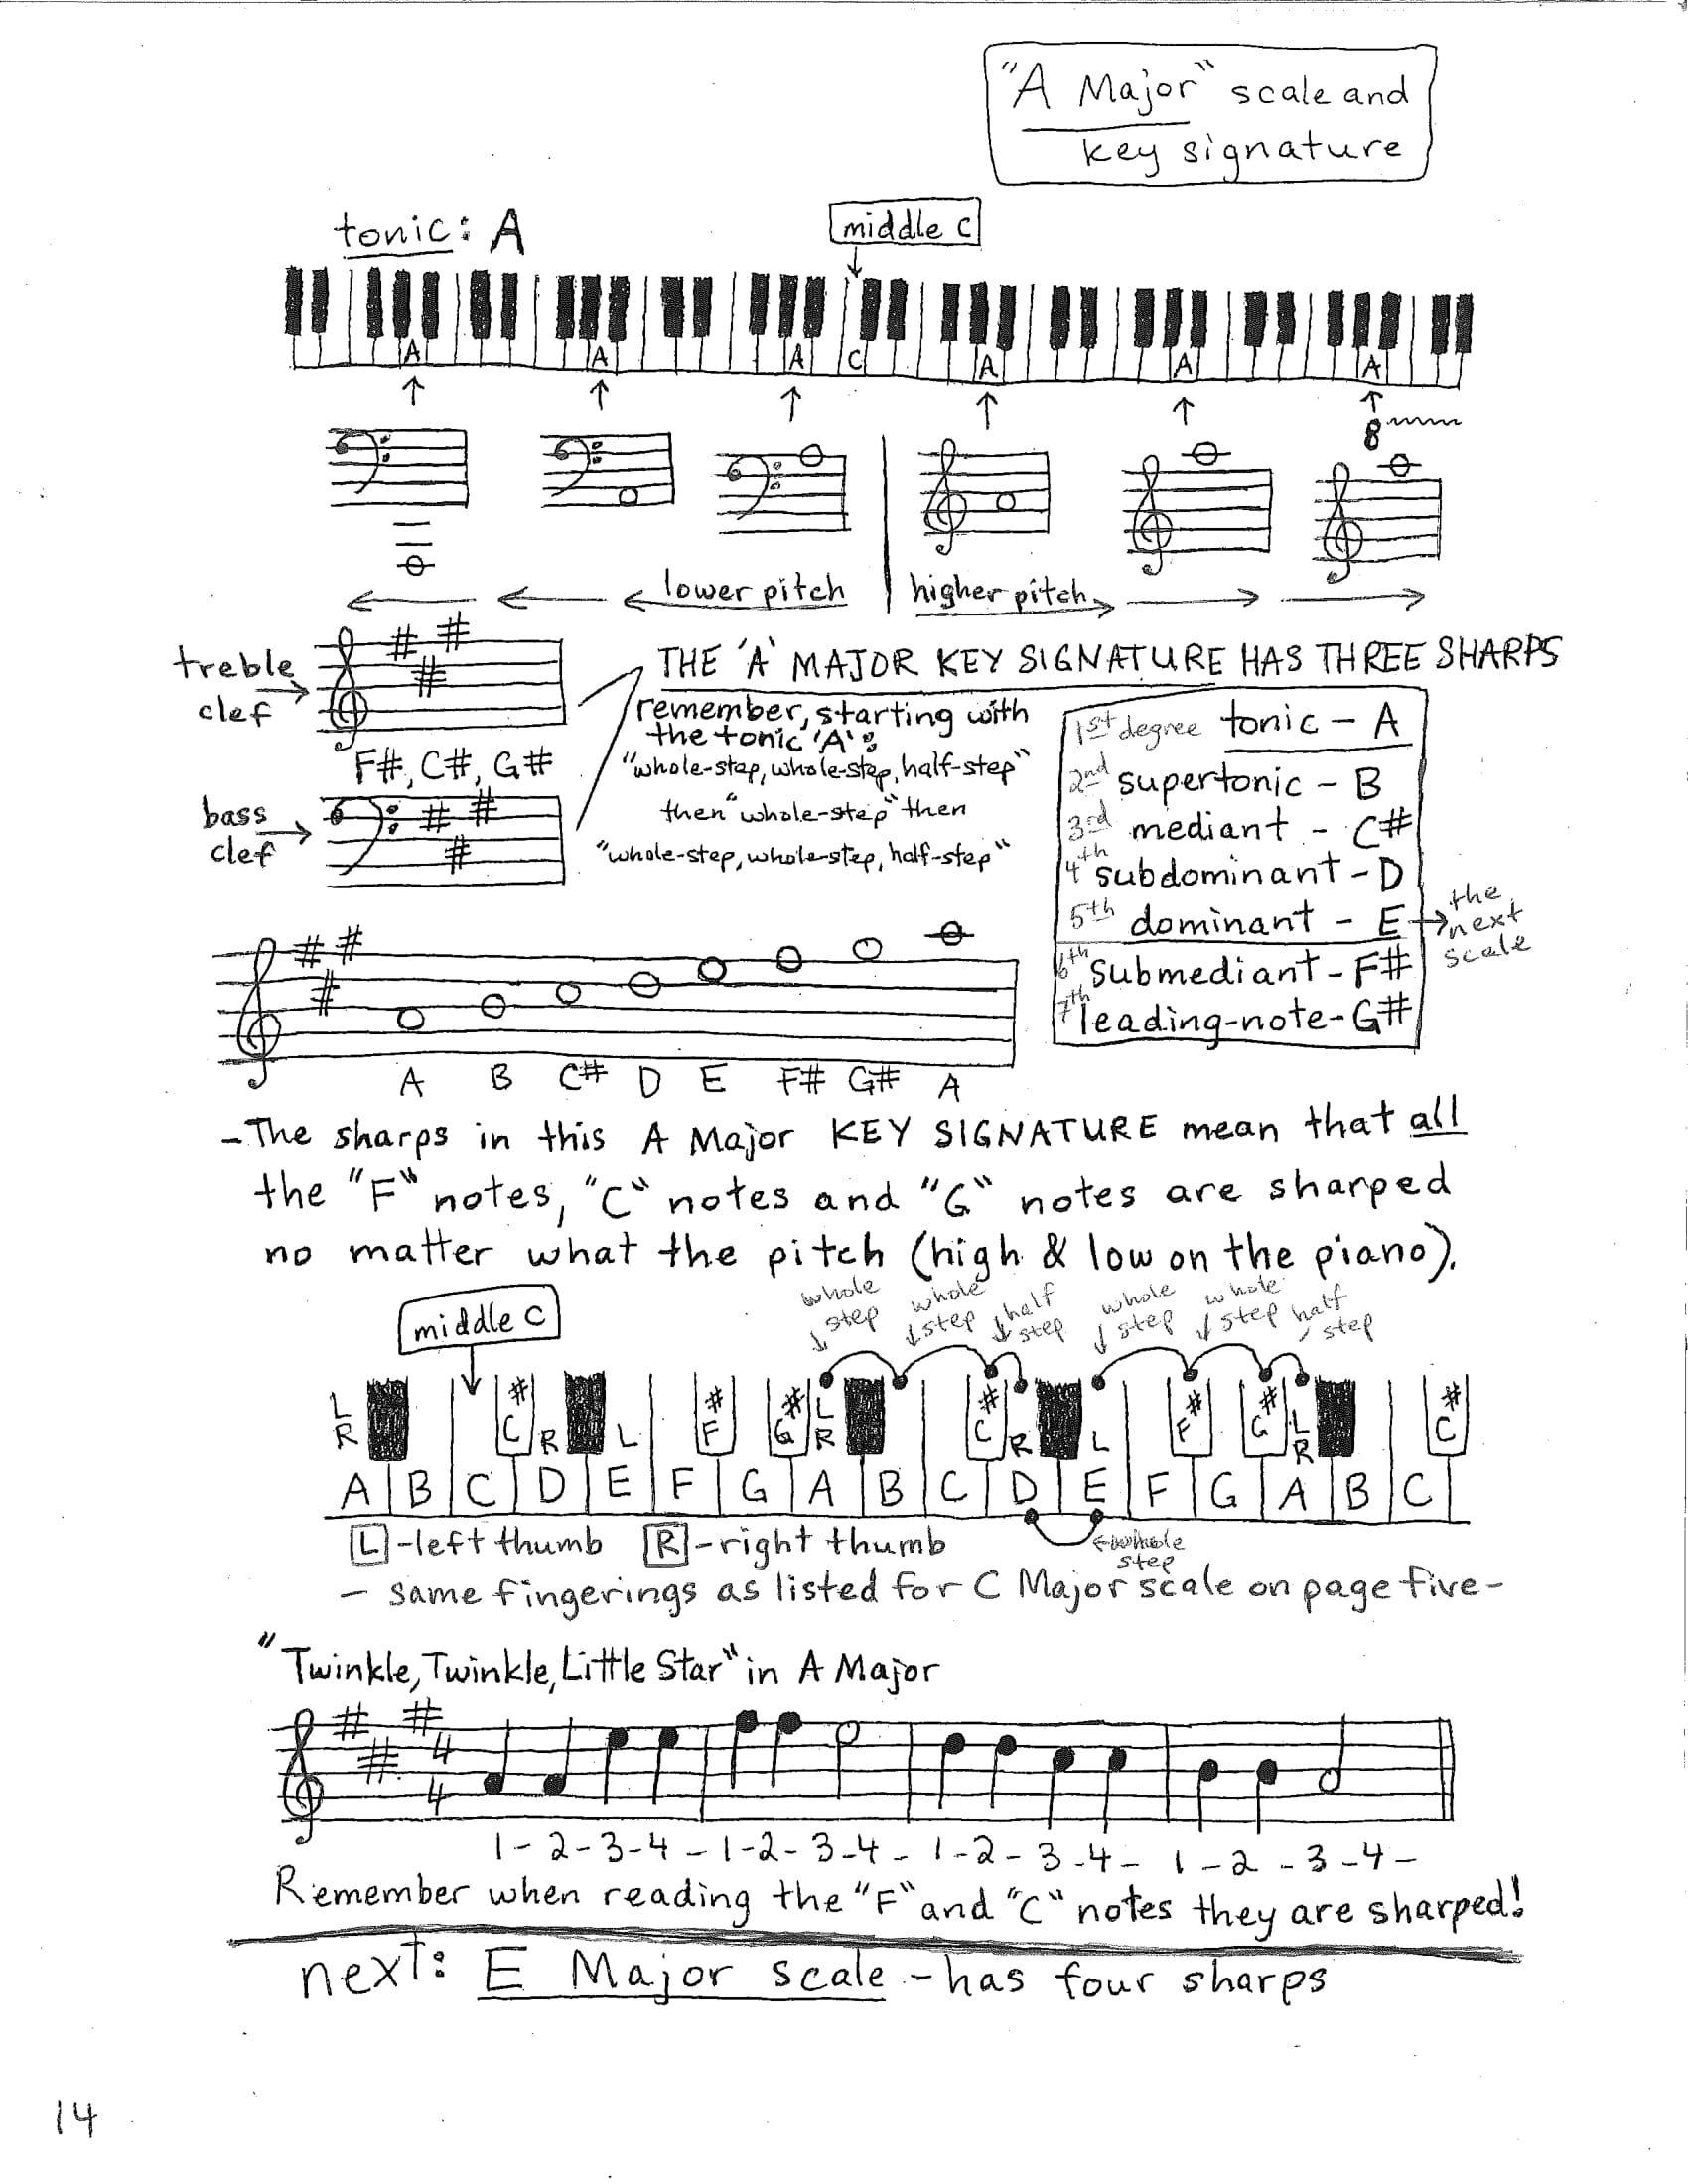 "A Major" scale and
key signature
tonic: A
middle C
A A A C A A A
8
lower pitch
higher pitch
treble
clef
F#, C#, G#
bass
clef
THE 'A' MAJOR KEY SIGNATURE HAS THREE SHARPS
remember, starting with
the tonic 'A':
"whole-step, whole-step, half-step"
then "whole-step" then
"whole-step, whole-step, half-step"
1st degree tonic - A
2nd supertonic - B
3rd mediant - C#
4th subdominant - D
5th dominant - E
6th submediant - F#
7th leading-note - G#
the
next
scale
A B C# D E F# G# A
- The sharps in this A Major KEY SIGNATURE mean that all
the "F" notes, "C" notes and "G" notes are sharped
no matter what the pitch (high & low on the piano).
middle C
whole step whole step half step whole step whole step half step
L R # C R L # F # G L R # C R L # F # G L R # C
A B C D E F G A B C D E F G A B C
L - left thumb R - right thumb
whole
step
- same fingerings as listed for C Major scale on page five -
"Twinkle, Twinkle, Little Star" in A Major
4
4
1 - 2 - 3 - 4 - 1 - 2 - 3 - 4 - 1 - 2 - 3 - 4 - 1 - 2 - 3 - 4 -
Remember when reading the "F" and "C" notes they are sharped!
next: E Major scale - has four sharps
14